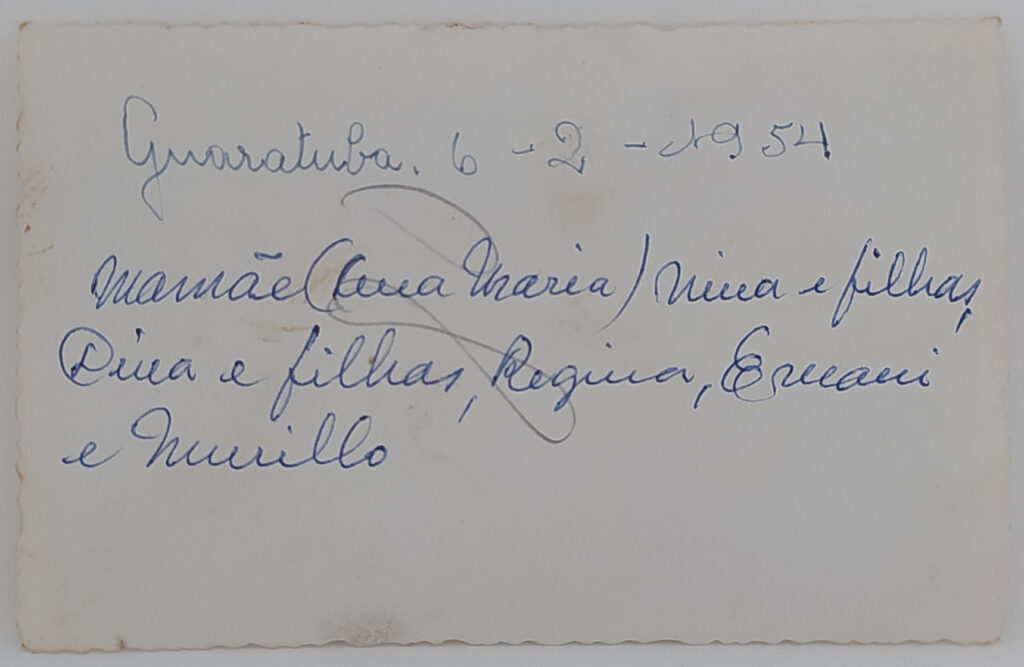 Guaratuba. 6 - 2 - 1954
Mamãe (Ana Maria) Nina e filhas,
Dina e filhas, Regina, Ernani
e Murillo